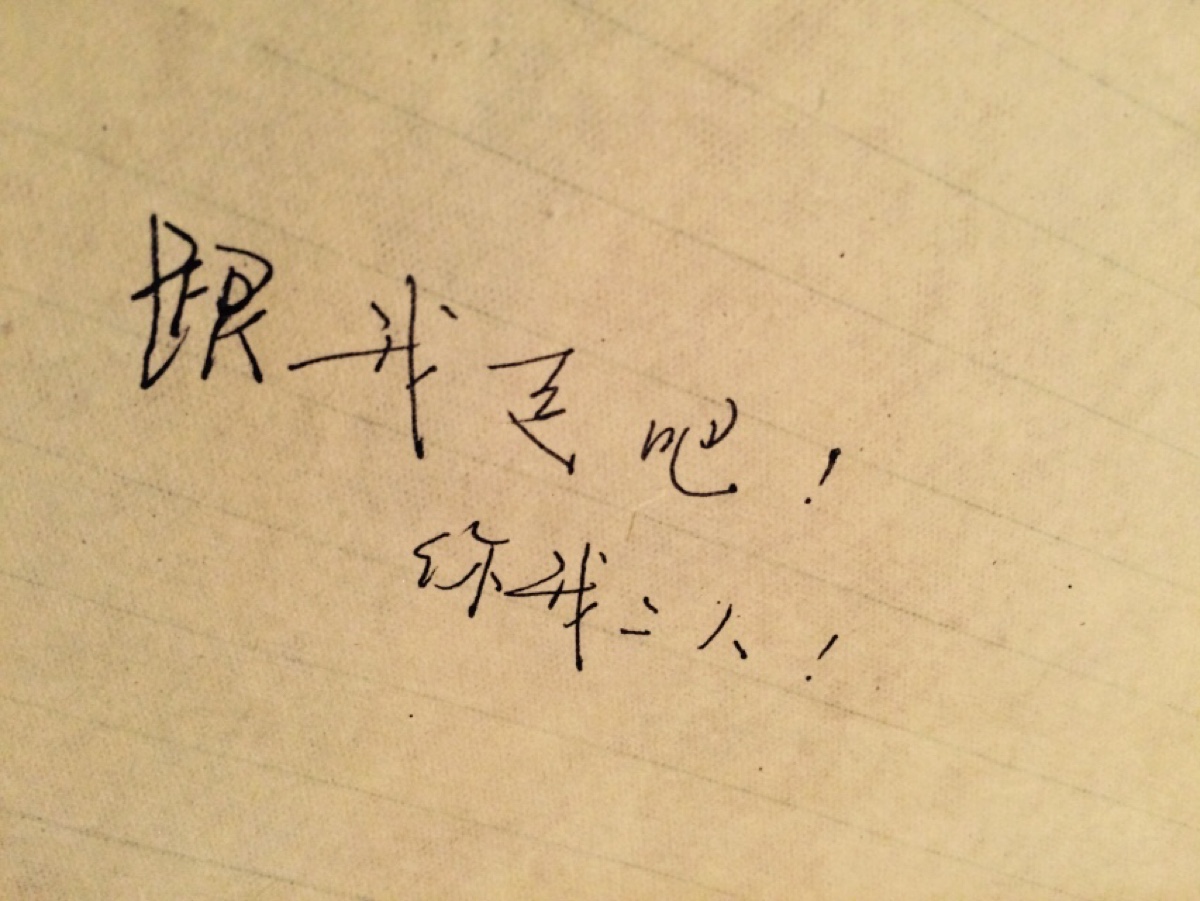 跟我走吧!
你我二人!